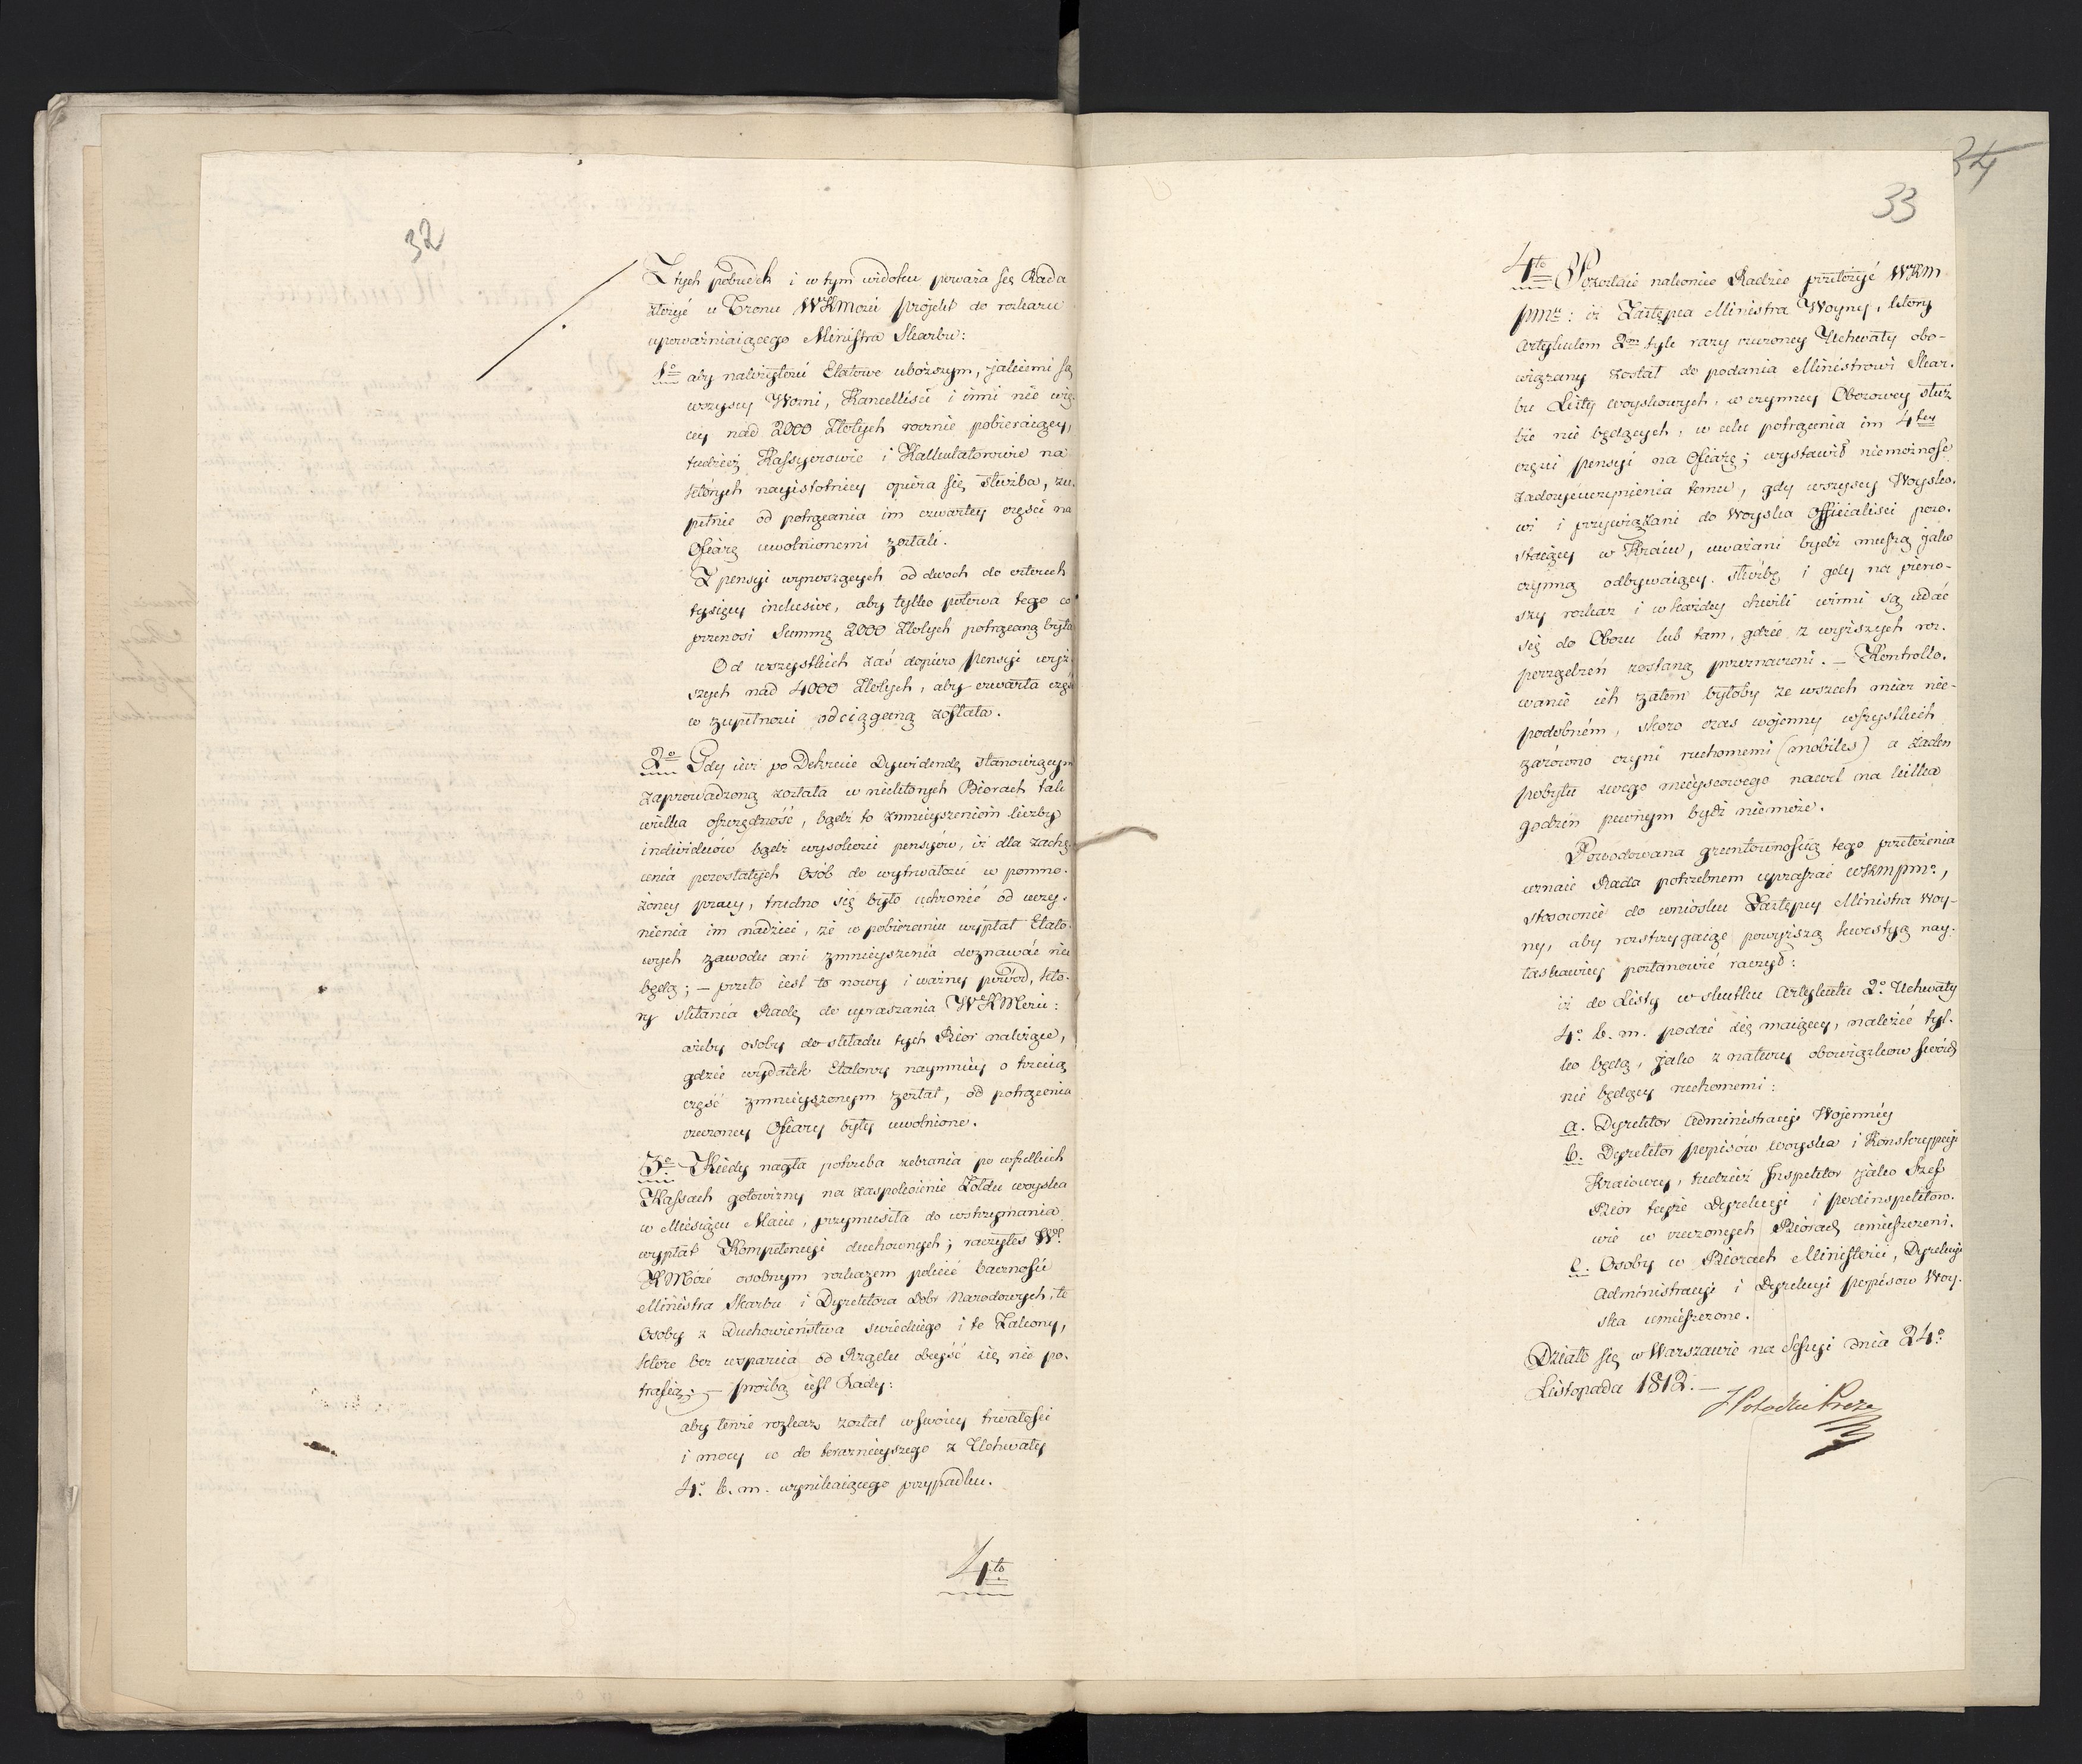 32
Z tych pobudek i w tym widoku poważa się Rada
złożyć u Tronu WKMości projekt do rozkazu
upoważniaiącego Ministra Skarbu:
1o aby należytości Etatowe uboższym, jakiemi są
wszyscy Woźni, Kancelliści i inni nie wię-
cey nad 2000 Złotych rocznie pobieraiący,
tudzież Kassyerowie i Kalkulatorowie na
których nayistotniey opiera się służba, zu-
pełnie od potrącania im czwartey części na
Ofiarę uwolnionemi zostali.
Z pensyi wynoszących od dwoch do czterech
tysięcy inclusive, aby tylko połowa tego co
przenosi Summę 2000 Złotych potrącaną była
Od wszystkich zaś dopiero pensyi wyż-
szych nad 4000 Złotych, aby czwarta część
w zupełności odciąganą została.
2o Gdy iuż po Dekrecie Dywidendę stanowiącym
zaprowadzoną została w niektorych Biorach tak
wielka oszczędność, bądź to zmnieyszeniem liczby
individuów bądź wysokości pensyów, iż dla zachę-
cenia pozostałych Osób do wytrwałości w pomno-
żoney pracy, trudno się było uchronić od uczy-
nienia im nadziei, że w pobieraniu wypłat Etato-
wych zawodu ani zmnieyszenia doznawać nie
będą; – przeto iest to nowy i ważny powód, któ-
ry skłania Radę do upraszania WKMości:
ażeby osoby do składu tych Biór należące,
gdzie wydatek Etatowy naymniey o trzecią
część zmnieyszonym został, od potrącenia
rzeczoney Ofiary były uwolnione.
3o Kiedy nagła potrzeba zebrania po wszelkich
Kassach gotowizny na zaspokoienie Żołdu woyska
w Miesiącu Maiu, przymusiła do wstrzymania
wypłat Kompetencyi duchownych; raczyłeś W.
KMość osobnym rozkazem polecić baczności
Ministra Skarbu i Dyrektora Dobr Narodowych, te
Osoby z Duchowieństwa swieckiego i te Zakony,
które bez wsparcia od Rządu obeyść się nie po-
trafią; – prozbą iest Rady:
aby tenże rozkaz został w swoiey trwałości
i mocy co do teraznieyszego z Uchwały
4o b. m. wynikaiącego przypadku.
4to
34
33
4to Pozostaie nakoniec Radzie przełożyć WKM
pmu: iż Zastępca Ministra Woyny, który
Artykułem 2m tyle razy rzeczoney Uchwały obo-
wiązany został do podania Ministrowi Skar-
bu Listy woyskowych, w czynney Obozowey służ
bie nie będących, w celu potrącenia im 4tey
części pensyi na Ofiarę; wystawił niemożność
zadosyćuczynienia temu, gdy wszyscy Woysko-
wi i przywiązani do Woyska Officialisci pozo-
staiący w Kraiu, uważani bydź muszą jako
czynną odbywaiący służbę i gdy na pierw-
szy rozkaz i w każdey chwili winni są udać
się do Obozu lub tam, gdzie z wyższych roz-
porządzeń zostaną przeznaczeni. – Kontrollo-
wanie ich zatem byłoby ze wszech miar nie-
podobném, skoro czas wojenny wszystkich
zarówno czyni ruchomemi (mobiles) a żaden
pobytu swego mieyscowego nawet na kilka
godzin pewnym bydź niemoże.
Powodowana gruntownością tego przełożenia
uznaie Rada potrzebnem upraszać WKMpmo,
stosownie do wniosku Zastępcy Ministra Woy-
ny, aby rozstrzygaiąc powyższą kwestyą nay-
łaskawiey postanowić raczył:
iż do Listy w skutku Artykułu 2o Uchwały
4o b. m. podać się maiącey, należeć tyl-
ko będą, jako z natury obowiązkow swoich
nie będący ruchomemi:
a. Dyrektor Administracyi Wojenney
b. Dyrektor popisów woyska i Konskrypcyi
Kraiowey, tudzież Inspektor jako Szef
Biór teyże Dyrekcyi i podinspektoro-
wie w rzeczonych Biórach umieszczeni.
c. Osoby w Biorach Ministerii, Dyrekcyi
Administracyi i Dyrekcyi popisow Woy-
ska umieszczone.
Działo się w Warszawie na Sessyi dnia 24o
Listopada 1812. –